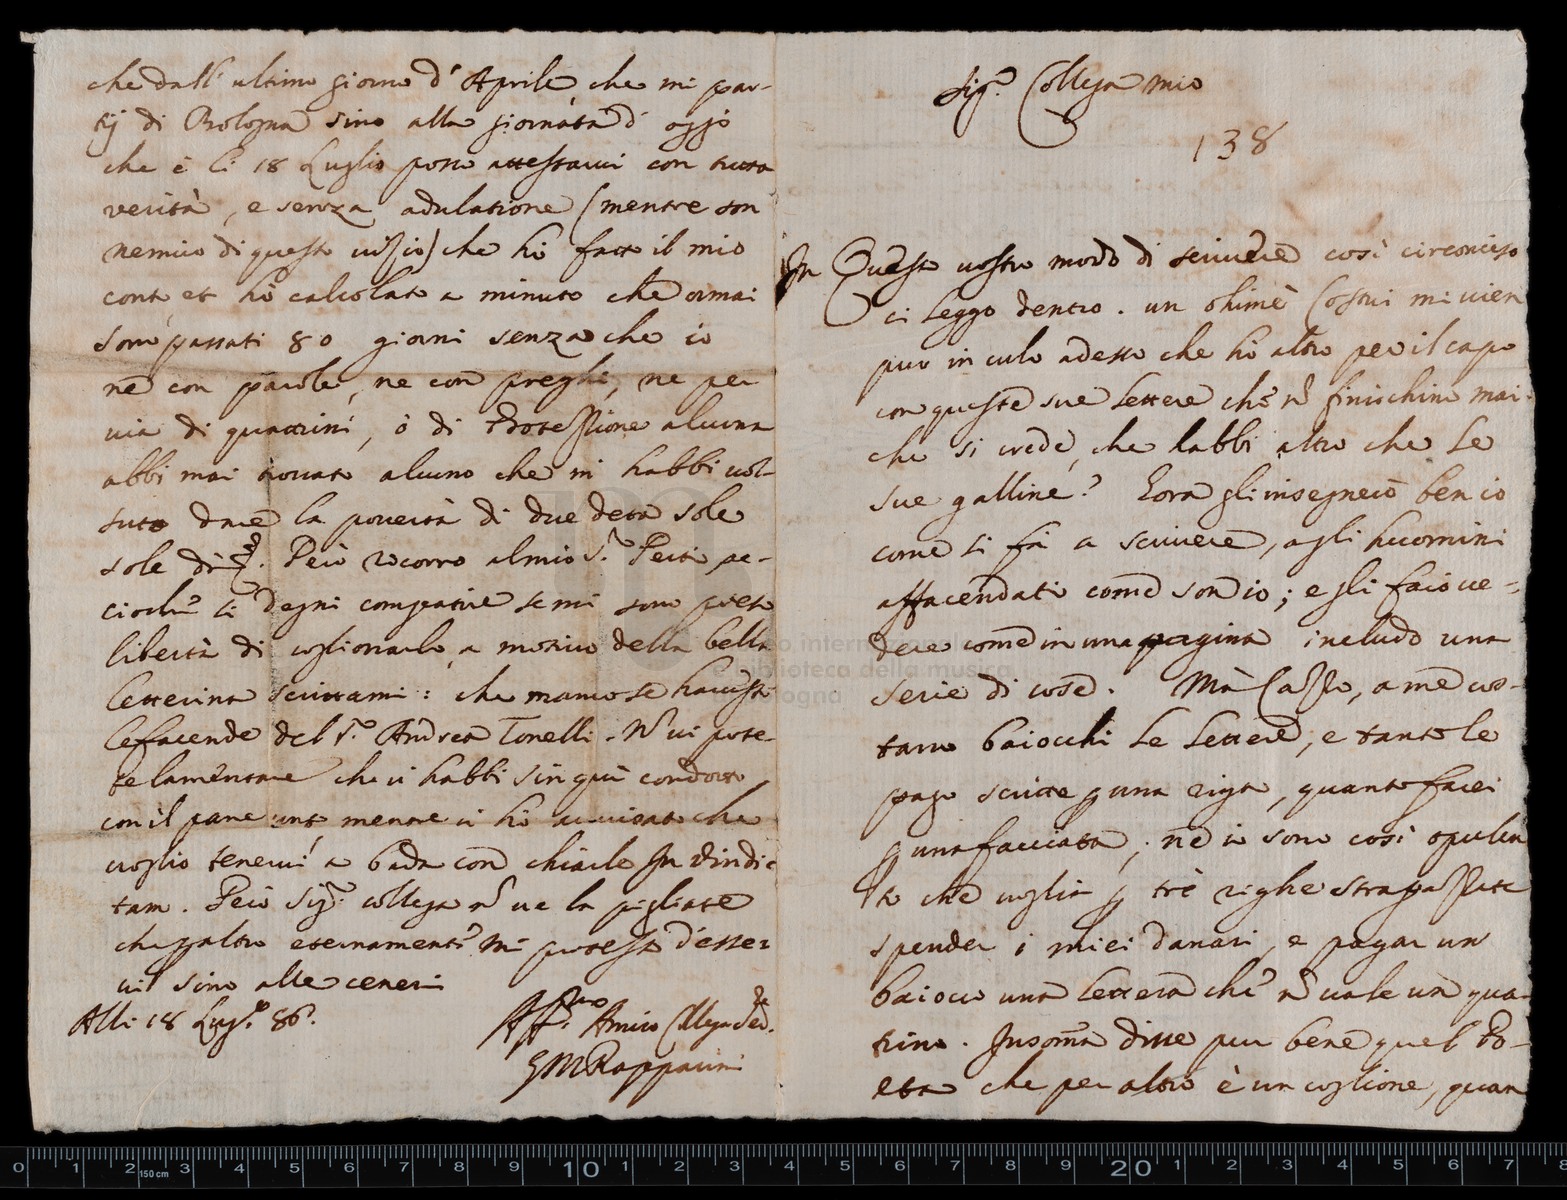 che dall' ultimo giorno d' Aprile, che mi par-
tij di Bologna sino alla giornata d' oggi
che è li 18 Luglio posso attestarvi con tutta
verità, e senza adulatione (mentre son
nemico di questo vizio) che hò fatto il mio
cont, et hò calcolato a minuto che ormai
sono passati 80 giorni senza che io
nè con parole, ne con preghi, ne per
via di quattrini, ò di Protessione alcuna
abbi mai trovato alcuno che m' habbi vol-
suto dare la povertà di due deta sole
sole di Però ricorro al mio S.r Perti ac-
ciochè si degni compatire se mi sono preso
libertà di coglionarlo a motivo della bella
letterina scrittami: che manco se havesse
le facende del S.r Andrea Tonelli. Nō vi pote-
te lamentare che vi habbi sin quì condotto
con il pane unto mentre vi hò avvisato che
voglio tenervi a bada con chiacle In vindic
tam. Però Sig.r collega nō ve la pigliate
che ꝑ altro eternamente mi protesto d'esser
vi sino alle ceneri
Alli 18 Lug.o 86.
Aff.mo Amico Collega Se.re
GM Rapparini
Sig.r Collega mio
138
In Questo vostro modo di scrivere così circonciso
ci leggo dentro. un ohimè Costui mi vien
pur in culo adesso che hò altro per il capo
con queste sue lettere che nō finischino mai.
che si crede, che habbi altro che le
sue galline? Hora gli insegnerò ben io
come si fà a scrivere, agli huomini
affacendati come son io; e gli farò ve-
dere come in una pagina includo una
serie di cose. Mà Cazzo, a me cos-
tano baiocchi le lettere, e tanto le
pago scritte ꝑ una riga, quanto farei
ꝑ una facciata; nè io sono così opulen
to che voglia ꝑ trè righe strapazzate
spender i miei danari, e pagar un
baiocco una lettera che nō vale un qua-
trino. Insomma disse pur bene quel Po-
eta che per altro è un coglione, quan